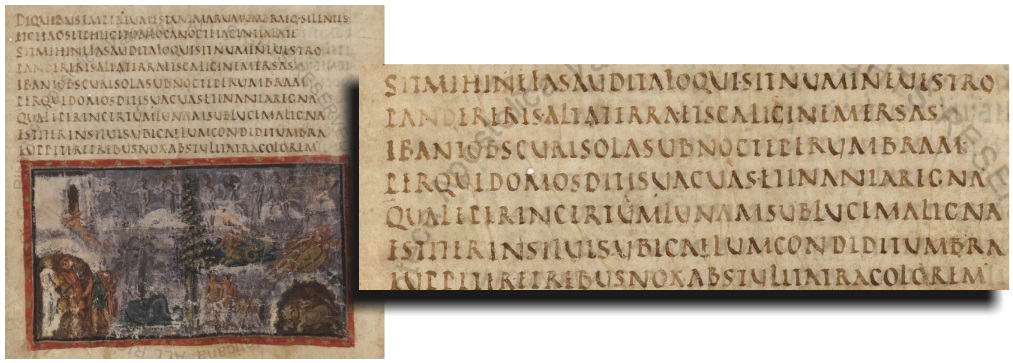 DIQUIBUSIMPERIUMESTANIMARUMUMBRAEQ·SILENTES
ETCHAOSETPHLEGETHONLOCANOCTETACENTIALATE
SITMIHINEFASAUDITALOQUISITNUMINEUESTRO
PANDERERES·ALTATERRAETSCALIGINEMERSAS
IBANTOBSCURISOLASUBNOCTEPERUMBRAAM
PERQUEDOMOSDITISUACUAS·ETINANIAREGNA
QUALEPERINCERTUMLUNAMSUBLUCEMALIGNA
ESTITERINSILUISUBICAELUMCONDIDITUMBRA
IUPPITERETREBUSNOXABSTULITATRACOLOREM
SITMIHINEFASAUDITALOQUISITNUMINEUESTRO
PANDERERES·ALTATERRAETSCALIGINEMERSAS
IBANTOBSCURISOLASUBNOCTEPERUMBRAAM
PERQUEDOMOSDITISUACUAS·ETINANIAREGNA
QUALEPERINCERTUMLUNAMSUBLUCEMALIGNA
ESTITERINSILUISUBICAELUMCONDIDITUMBRA
IUPPITERETREBUSNOXABSTULITATRACOLOREM